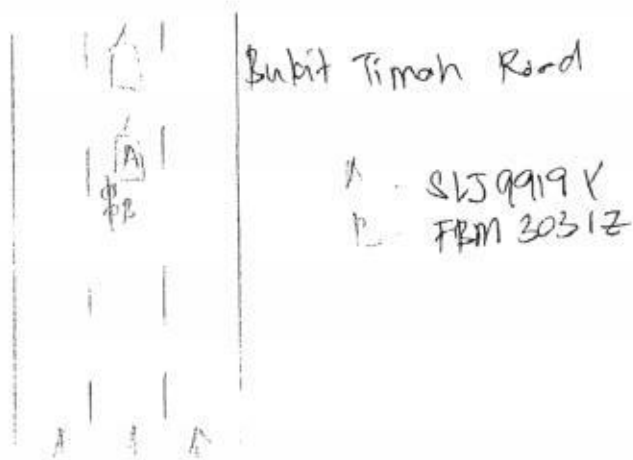 Bukit Timah Road
A
A - SLJ9919Y
B
B - FBM3031Z